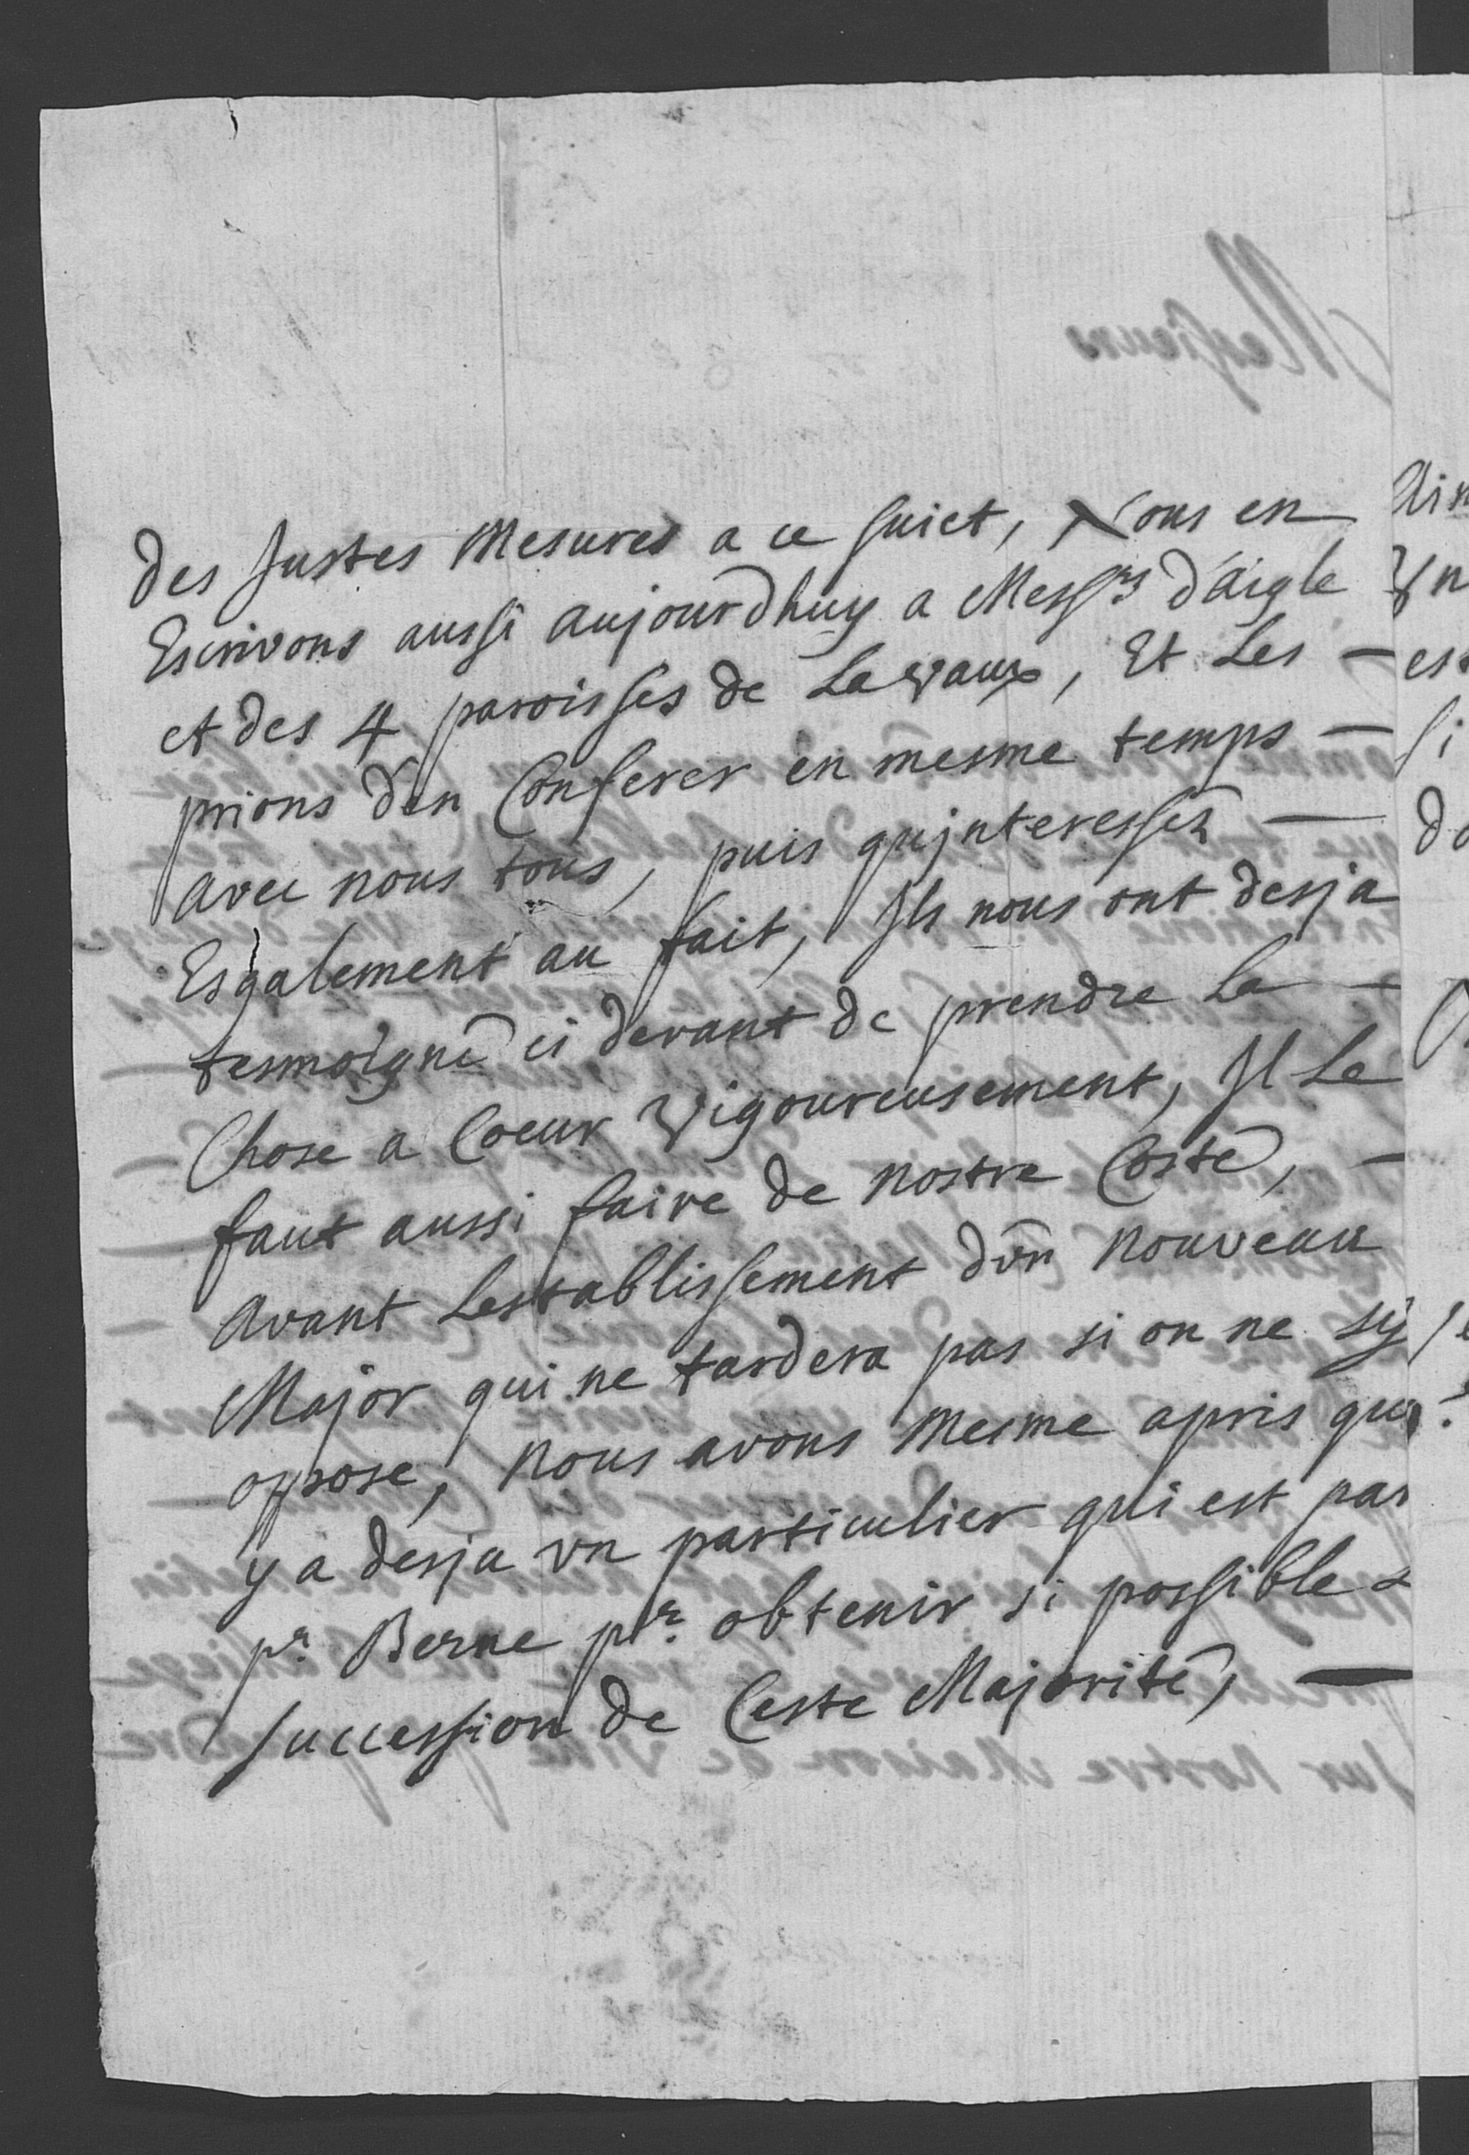 des Justes Mesures a ce suiet, Nous en
Escrivons aussi aujourdhuy a Mess.rs d'aigle
et des 4 paroisses de Lavaux, Et Les —
prions d'en Conferer en mesme temps —
avec nous tous, puis qujnteressés —
Esgalement au fait, Jls nous ont desja
tesmoigné ci devant de prendre La —
Chose a Coeur vigoureusement, Jl Le
faut aussi faire de nostre Costé, —
avant Lestablissement dvn nouveau
Major qui ne tardera pas si on ne sÿ
oppose, nous avons mesme apris qu
y a desja vn particulier qui est par
p.r Berne p.r obtenir si possible
succession de Ceste Majorité, —